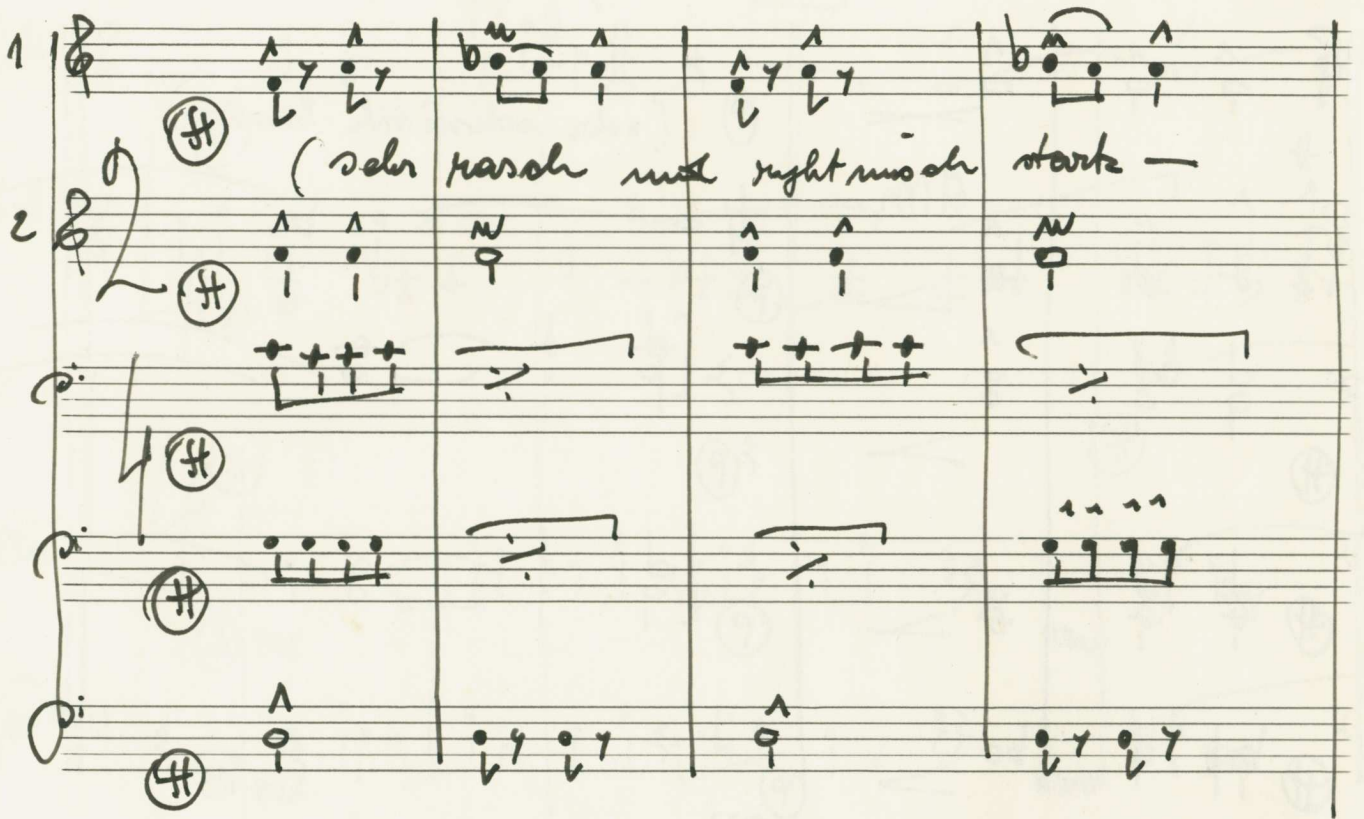 1
ff
(sehr rasch und rythmisch stark —
2
2
ff
4
ff
ff
ff